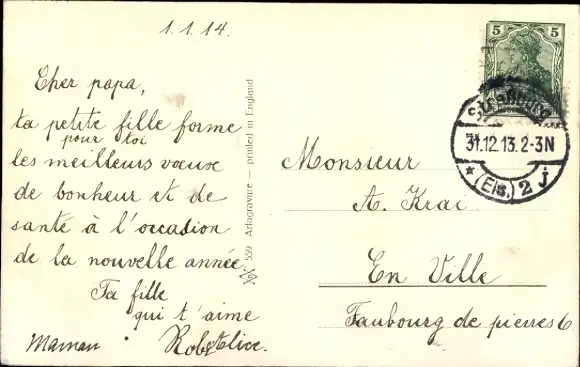 1.1.14.
Cher papa,
ta petite fille forme
pour toi
les meilleurs vœux
de bonheur et de
santé à l'occasion
de la nouvelle année.
Ta fille
qui t'aime
Maman.
Alice.
559 Artagravure — printed in England
5 5
Strassburg
31.12.13.2-3N
* (Els.) 2 j
Monsieur
A. Krai
En Ville
Faubourg de pierres 6